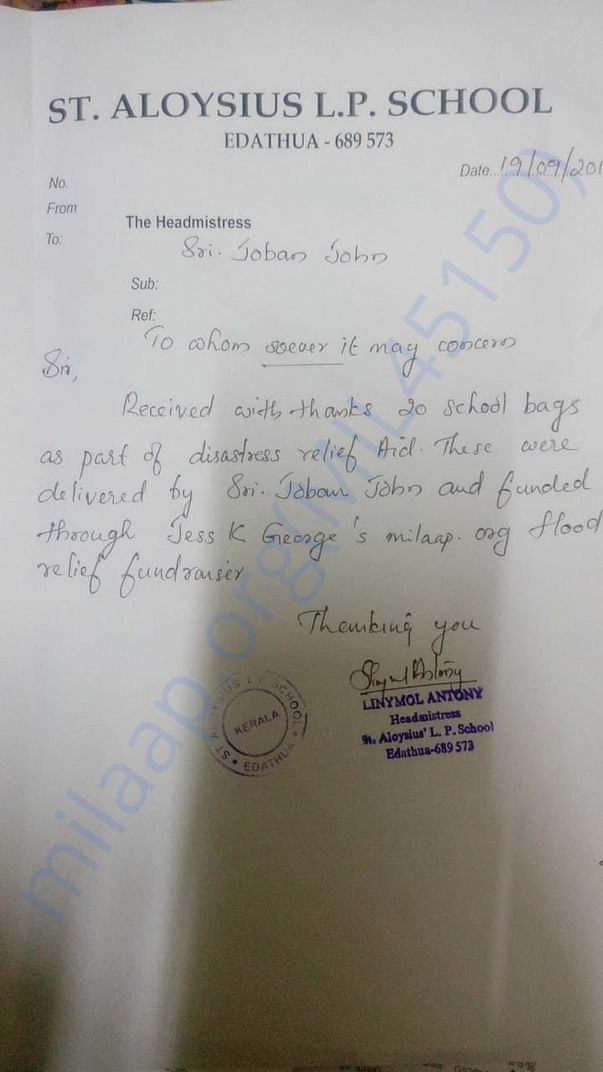 ST. ALOYSIUS L.P. SCHOOL
EDATHUA - 689 573
Date...19/09/201
No.
From
The Headmistress
To:
Sri. Joban John
Sub:
Ref:
To whom soever it may concern
Sir,
Received with thanks 20 school bags
as part of disastress relief Aid. These were
delivered by Sri. Joban John and funded
through Jess K George's milaap.org flood
relief fundraiser
Thanking you
LINYMOL ANTONY
Headmistress
St. Aloysius' L. P. School
Edathua-689 573
ST ALOYSIUS L.P. SCHOOL
KERALA
EDATHUA
milaap.org(MIL451501)